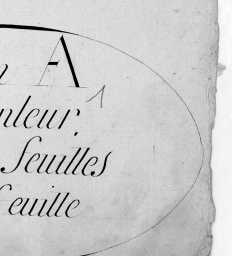 A
1
nleur.
Feuilles
Feuille